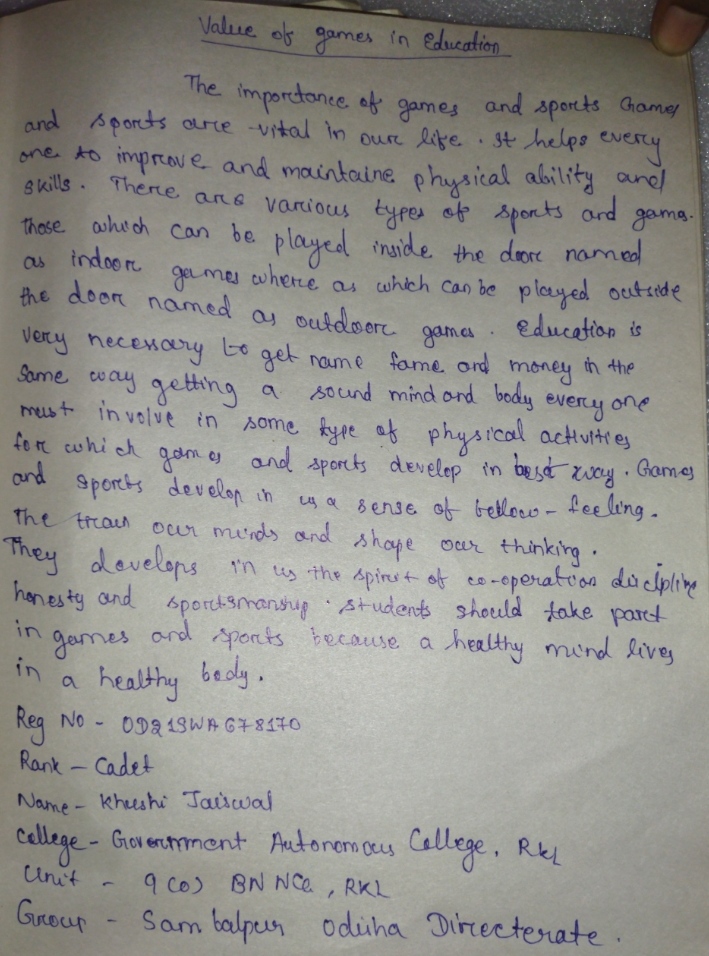 Value of games in Education
The importance of games and sports Games
and sports are vital in our life. It helps every
one to improve and maintaine physical ability and
skills. There are various types of sports and games.
Those which can be played inside the door named
as indoor games where as which can be played outside
the door named as outdoor games. Education is
very necessary to get name fame and money in the
same way getting a sound mind and body every one
must involve in some type of physical activities
for which games and sports develop in best way. Games
and sports develop in us a sense of bellow-feeling.
The train our minds and shape our thinking.
They develops in us the spirit of co-operation discipline
honesty and sportsmanship. Students should take part
in games and sports because a healthy mind lives
in a healthy body.
Reg No - OD21SWA678170
Rank - Cadet
Name - Khushi Jaiswal
College - Government Autonomous College, RKL
Unit - 9 (O) BN NCC, RKL
Group - Sambalpur Odisha Directerate.